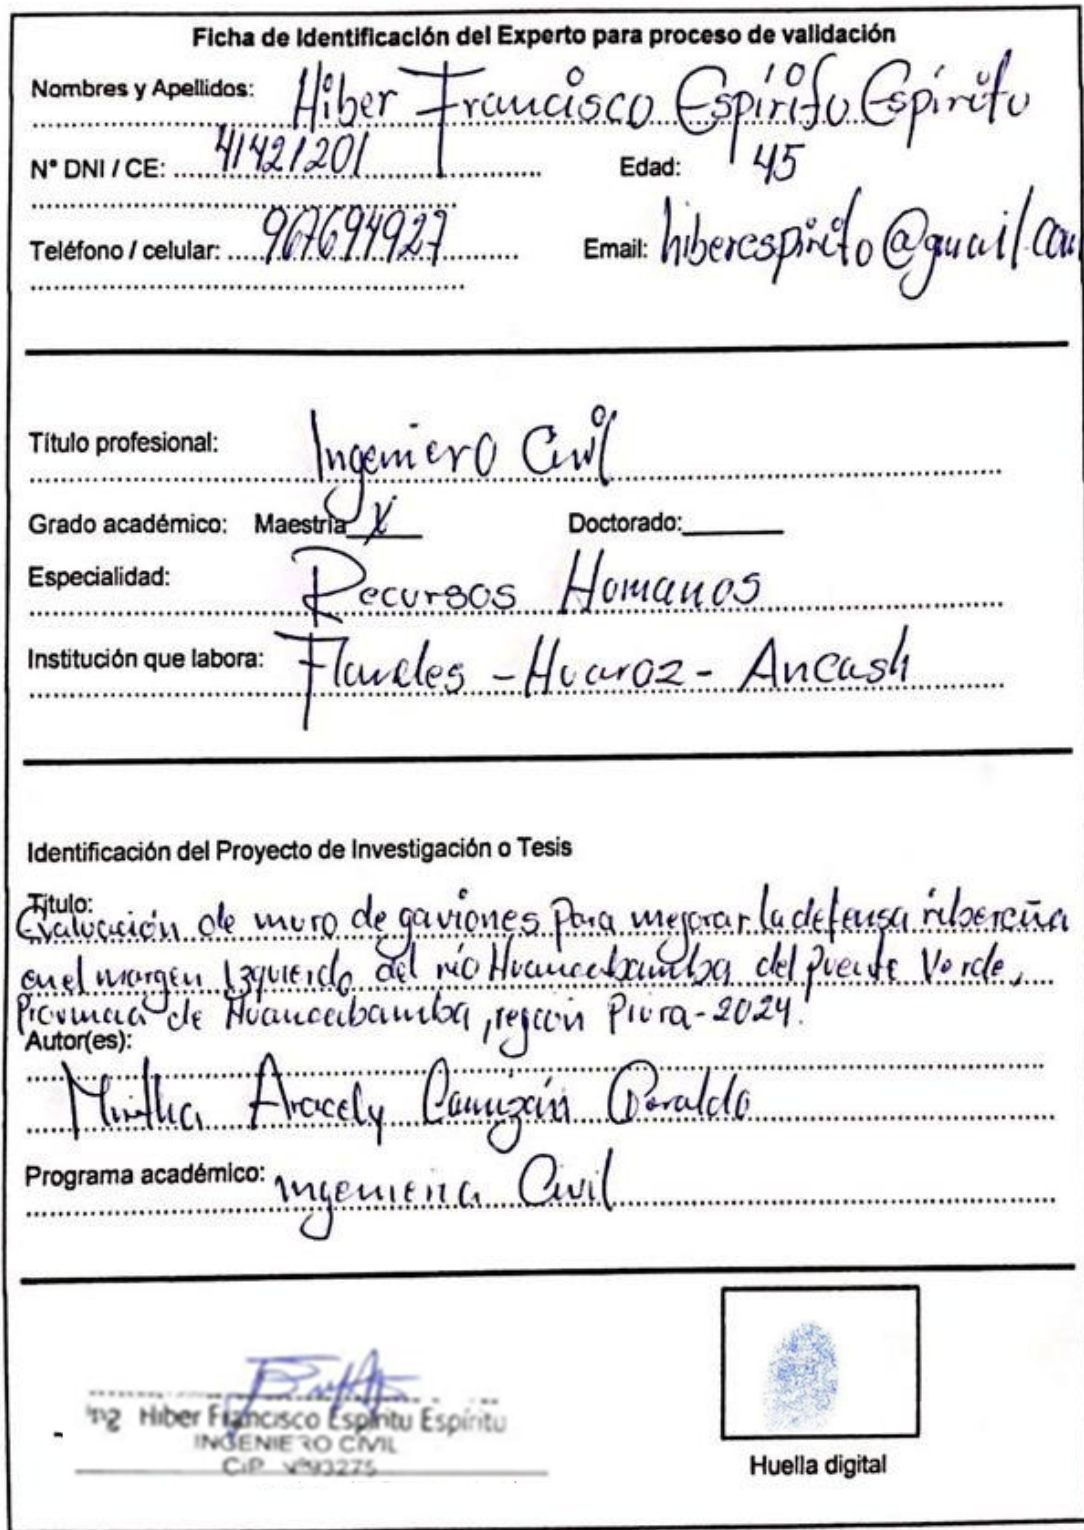 Ficha de Identificación del Experto para proceso de validación
Nombres y Apellidos: Hiber Francisco Espíritu Espíritu
N° DNI / CE: 41421201 Edad: 45
Teléfono / celular: 967694927 Email: hiberespirito@gmail.com
Título profesional: Ingeniero Civil
Grado académico: Maestría X Doctorado:
Especialidad: Recursos Homanos
Institución que labora: - Huaroz - Ancash
Identificación del Proyecto de Investigación o Tesis
Título:
Evaluación de muro de gaviones para mejorar la defensa ribereña
en el margen Izquierdo del río Huancabamba del puente Verde,
Provincia de Huancabamba, región Piura-2024.
Autor(es):
Mirtha Aracely Camizán
Programa académico: Ingenieria Civil
Ing Hiber Francisco Espíritu Espíritu
INGENIERO CIVIL
CIP N°93275
Huella digital